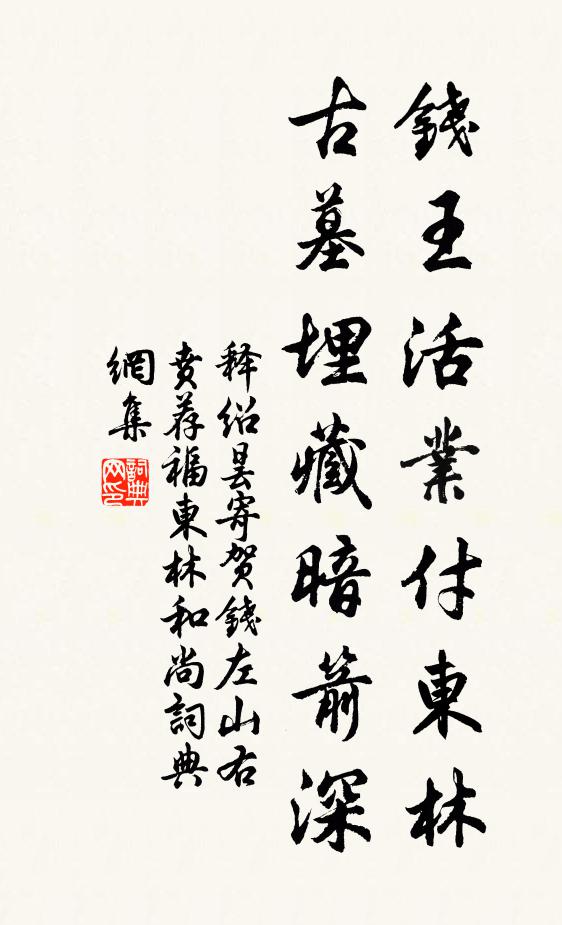 錢王活業付東林
古墓埋藏暗箭深
释绍昙寄贺錢左山右
赍荐福東林和尚詞典
網集
詞典网印